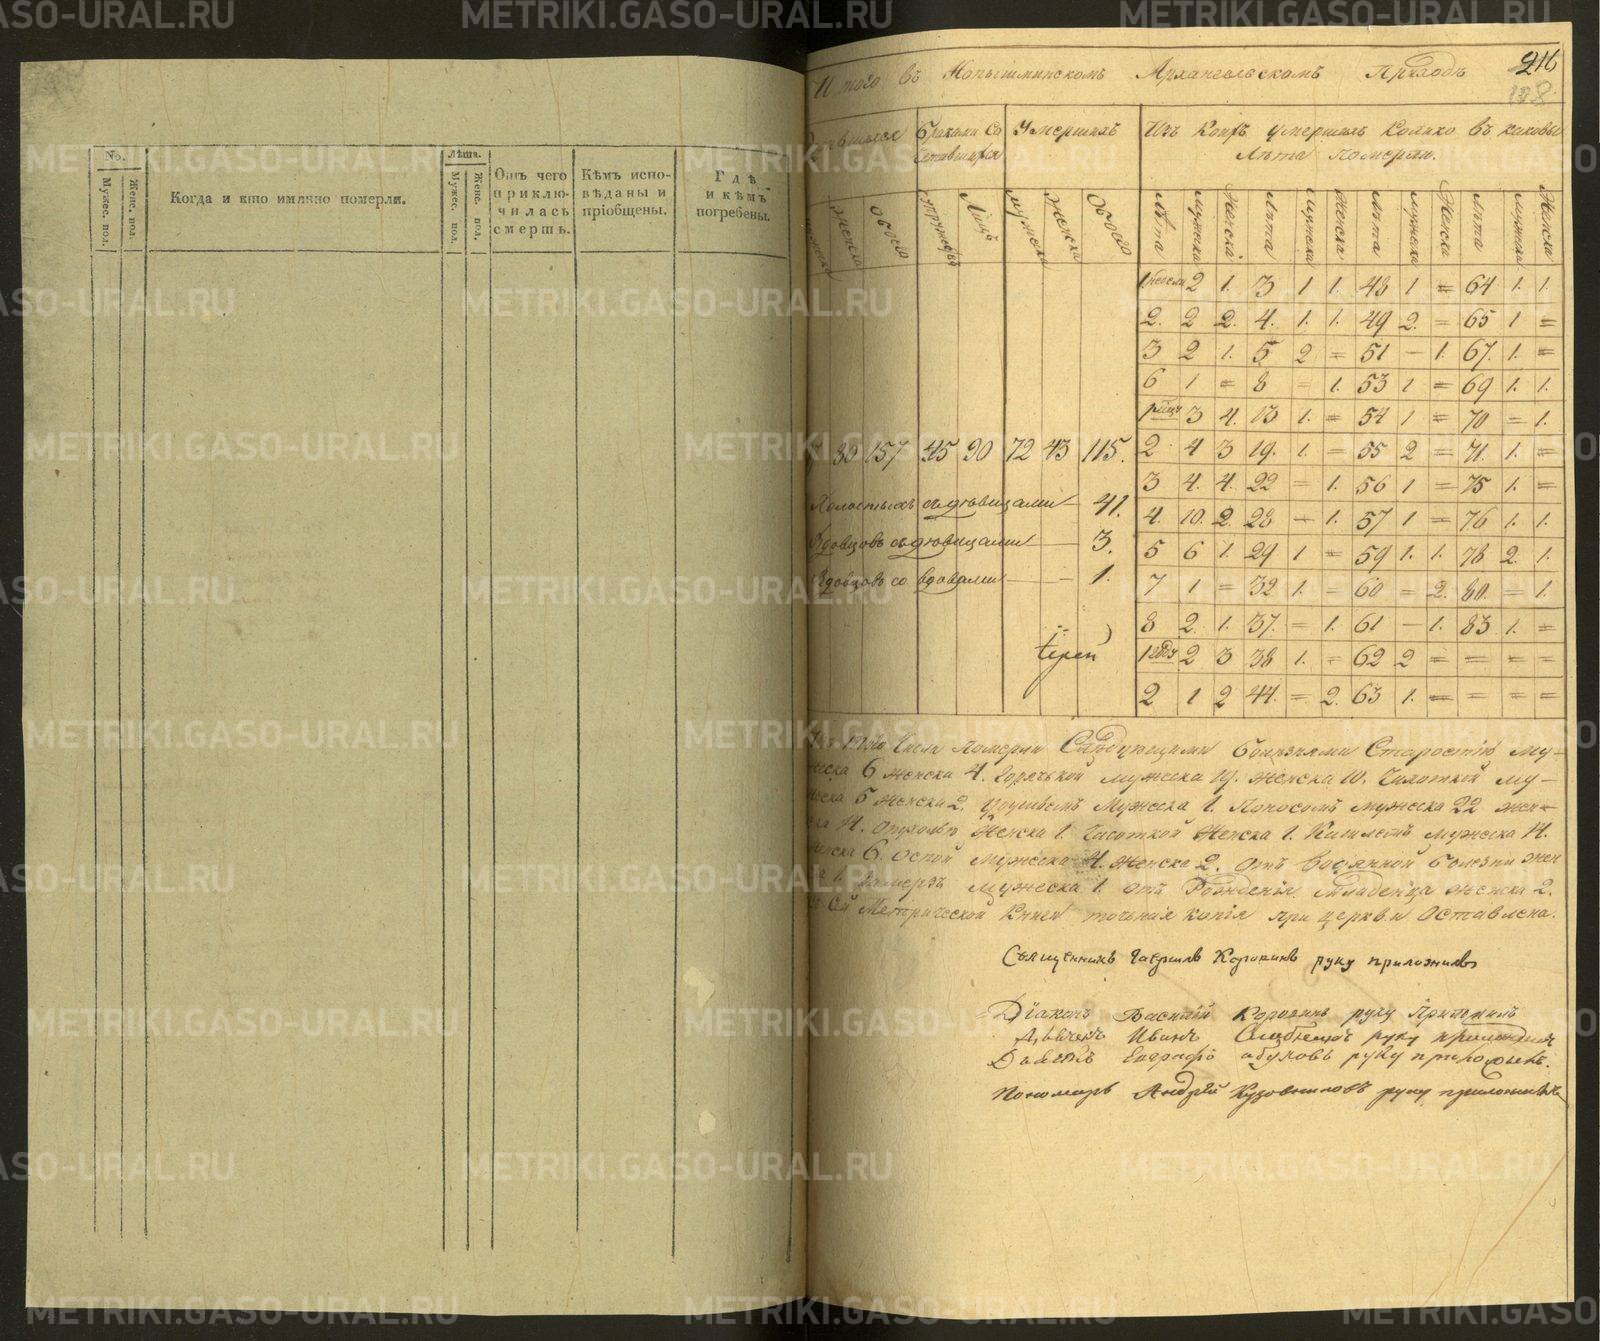 No.
Мужес. пол.
Женс. пол.
Когда и кто имянно померли.
Лѣта.
Мужес. пол.
Женс. пол.
Отъ чего
приклю-
чилась
смерть.
Кѣмъ испо-
вѣданы и
пріобщены.
Гдѣ
и кѣмъ
погребены.
216
Итого въ Архангельскомъ Приходѣ
Браками Со Умершихъ Изъ Коихъ умершихъ Колико въ каковы
Лѣта померли.
женска обоего Лицъ мужеска женска Обоего Лѣта мужеска Женска Лѣта мужеска Женска лѣта мужеска Женска лѣта мужеска Женска
1 недели 2 1. 3 1 1. 48 1 = 64 1. 1.
2. 2 2. 4. 1. 1. 49 2. = 65 1 =
3 2 1. 5 2 = 51 – 1. 67. 1. =
6 1 = 8 = 1. 53 1 = 69 1. 1.
3 4. 13 1. = 54 1 = 70 = 1.
80 157 45 90 72 43 115. 2 4 3 19. 1. = 55 2 = 71. 1. =
3 4. 4. 22 – 1. 56 1 = 75 1. =
Холостыхъ съ дѣвицами — 41.
4. 10. 2. 28 – 1. 57 1 = 76 1. 1.
Вдовцовъ съ дѣвицами — 3.
5 6 1. 29 1 = 59 1. 1. 78 2. 1.
Вдовцовъ со вдовами — 1.
7 1 = 32 1. = 60 = 2. 80. = 1.
8 2. 1. 37. = 1. 61 – 1. 83 1. =
1 году 2 3 38 1. = 62 2 = = = =
2 1 2 44. = 2. 63 1. = = = =
Числа померли Слѣдующими болезнями Старостію му-
жеска 6 женска 4. Горячькой мужеска 19. женска 10. Чихоткой му-
жеска 5 женска 2. Мужеска 1. Поносомъ мужеска 22 жен-
ска 14. Женска 1. Женска 1. Кашлемъ мужеска 14.
женска 6. Оспой мужеска 4. женска 2. отъ Водянной болезни жен
ска 1. Замерзъ мужеска 1. отъ Рожденія Младенца женска 2.
Сей Метрической Книги точная копія при церкви Оставлена.
Священникъ Гавриилъ руку приложилъ
Діаконъ Василій руку Приложилъ
Дьячекъ Иванъ руку приложилъ
руку приложилъ.
Пономарь Андрей Кузовниковъ руку приложилъ
METRIKI.GASO-URAL.RU